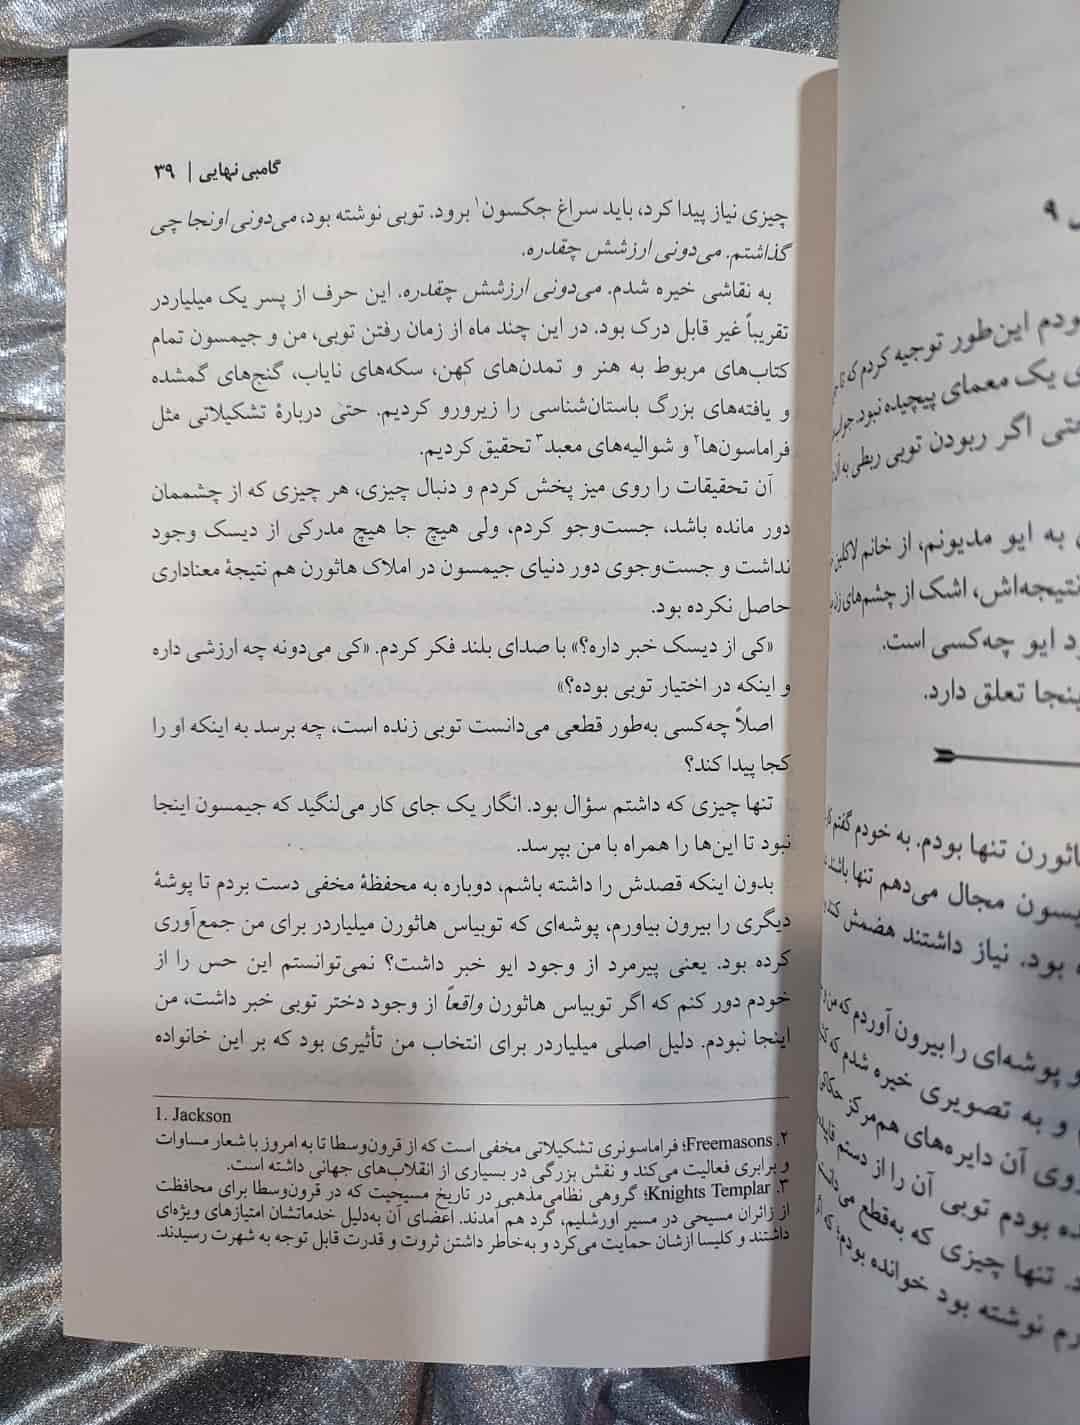 گامبی نهایی | ۳۹
چیزی نیاز پیدا کرد، باید سراغ جکسون۱ برود. توبی نوشته بود، می‌دونی اونجا چی
گذاشتم. می‌دونی ارزشش چقدره.
به نقاشی خیره شدم. می‌دونی ارزشش چقدره. این حرف از پسر یک میلیاردر
تقریباً غیر قابل درک بود. در این چند ماه از زمان رفتن توبی، من و جیمسون تمام
کتاب‌های مربوط به هنر و تمدن‌های کهن، سکه‌های نایاب، گنج‌های گمشده
و یافته‌های بزرگ باستان‌شناسی را زیرورو کردیم. حتی دربارهٔ تشکیلاتی مثل
فراماسون‌ها۲ و شوالیه‌های معبد۳ تحقیق کردیم.
آن تحقیقات را روی میز پخش کردم و دنبال چیزی، هر چیزی که از چشممان
دور مانده باشد، جست‌وجو کردم، ولی هیچ جا هیچ مدرکی از دیسک وجود
نداشت و جست‌وجوی دور دنیای جیمسون در املاک هاثورن هم نتیجهٔ معناداری
حاصل نکرده بود.
«کی از دیسک خبر داره؟» با صدای بلند فکر کردم. «کی می‌دونه چه ارزشی داره
و اینکه در اختیار توبی بوده؟»
اصلاً چه‌کسی به‌طور قطعی می‌دانست توبی زنده است، چه برسد به اینکه او را
کجا پیدا کند؟
تنها چیزی که داشتم سؤال بود. انگار یک جای کار می‌لنگید که جیمسون اینجا
نبود تا این‌ها را همراه با من بپرسد.
بدون اینکه قصدش را داشته باشم، دوباره به محفظهٔ مخفی دست بردم تا پوشهٔ
دیگری را بیرون بیاورم، پوشه‌ای که توبیاس هاثورن میلیاردر برای من جمع‌آوری
کرده بود. یعنی پیرمرد از وجود ایو خبر داشت؟ نمی‌توانستم این حس را از
خودم دور کنم که اگر توبیاس هاثورن واقعاً از وجود دختر توبی خبر داشت، من
اینجا نبودم. دلیل اصلی میلیاردر برای انتخاب من تأثیری بود که بر این خانواده
1. Jackson
۲. Freemasons؛ فراماسونری تشکیلاتی مخفی است که از قرون‌وسطا تا به امروز با شعار مساوات
و برابری فعالیت می‌کند و نقش بزرگی در بسیاری از انقلاب‌های جهانی داشته است.
۳. Knights Templar؛ گروهی نظامی‌مذهبی در تاریخ مسیحیت که در قرون‌وسطا برای محافظت
از زائران مسیحی در مسیر اورشلیم، گرد هم آمدند. اعضای آن به‌دلیل خدماتشان امتیازهای ویژه‌ای
داشتند و کلیسا ازشان حمایت می‌کرد و به‌خاطر داشتن ثروت و قدرت قابل توجه به شهرت رسیدند.
۹
این‌طور توجیه کردم که
یک معمای پیچیده نبود.
اگر ربودن توبی ربطی به
به ایو مدیونم، از خانم لاکلین
نتیجه‌اش، اشک از چشم‌های
ایو چه‌کسی است.
تعلق دارد.
تنها بودم. به خودم گفتم
مجال می‌دهم تنها باشند،
بود. نیاز داشتند هضمش کنند
و پوشه‌ای را بیرون آوردم که
و به تصویری خیره شدم که
روی آن دایره‌های هم‌مرکز
بودم توبی آن را از دستم
تنها چیزی که به‌قطع
نوشته بود خوانده بودم؛ که